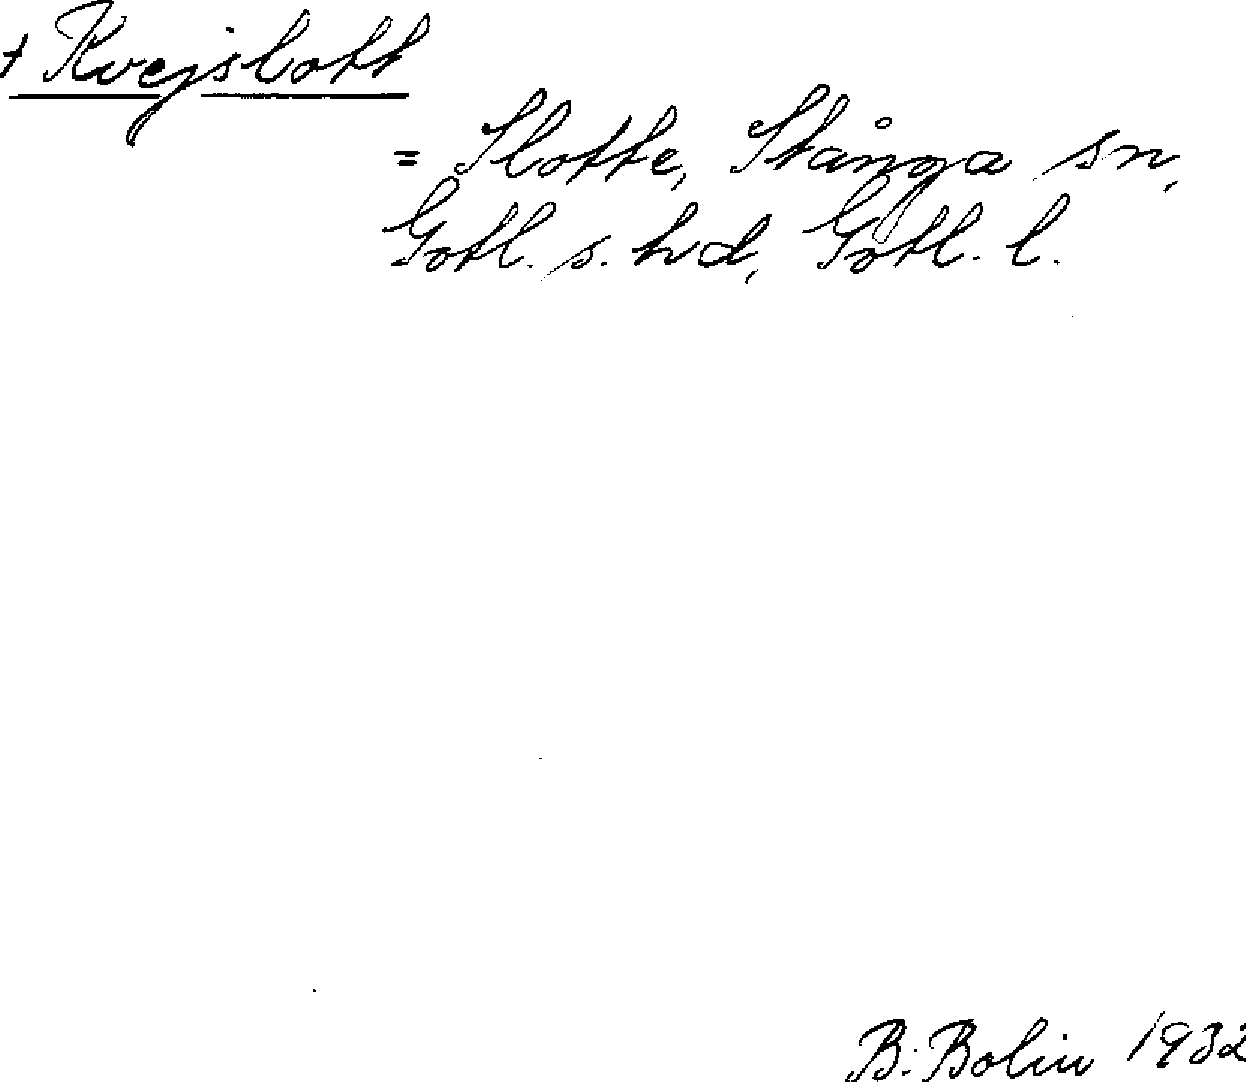 † Kvejslott
= Slotte, Stånga sn,
Gotl. s. hd, Gotl. l.
B. Bolin 1932